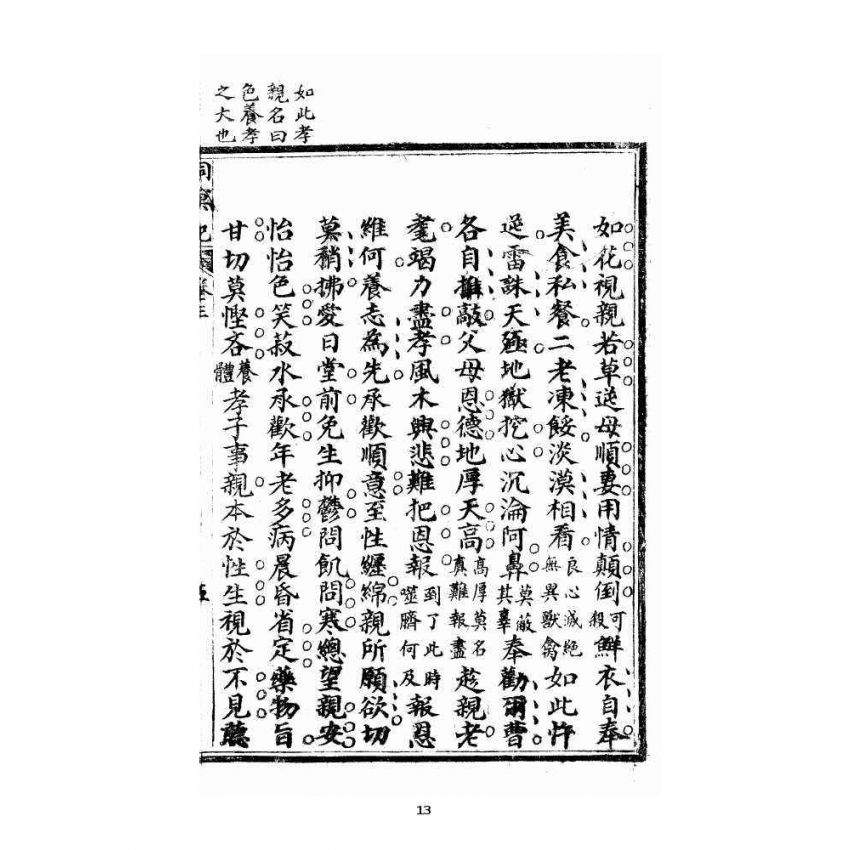 如此孝
親名曰
色養孝
之大也
如花視親若草逆母順妻用情顛倒可殺鮮衣自奉
美食私餐二老凍餒淡漠相看良心滅絕無異獸禽如此忤
逆雷誅天殛地獄挖心沉淪阿鼻莫蔽其辜奉勸爾曹
各自推敲父母恩德地厚天高高厚莫名真難報盡趁親老
耄竭力盡孝風木興悲難把恩報到了此時噬臍何及報恩
維何養志為先承歡順意至性纏綿親所願欲切
莫稍拂愛日堂前免生抑鬱問飢問寒總望親安
怡怡色笑菽水承歡年老多病晨昏省定藥物旨
甘切莫慳吝養體孝子事親本於性生視於不見聽
13